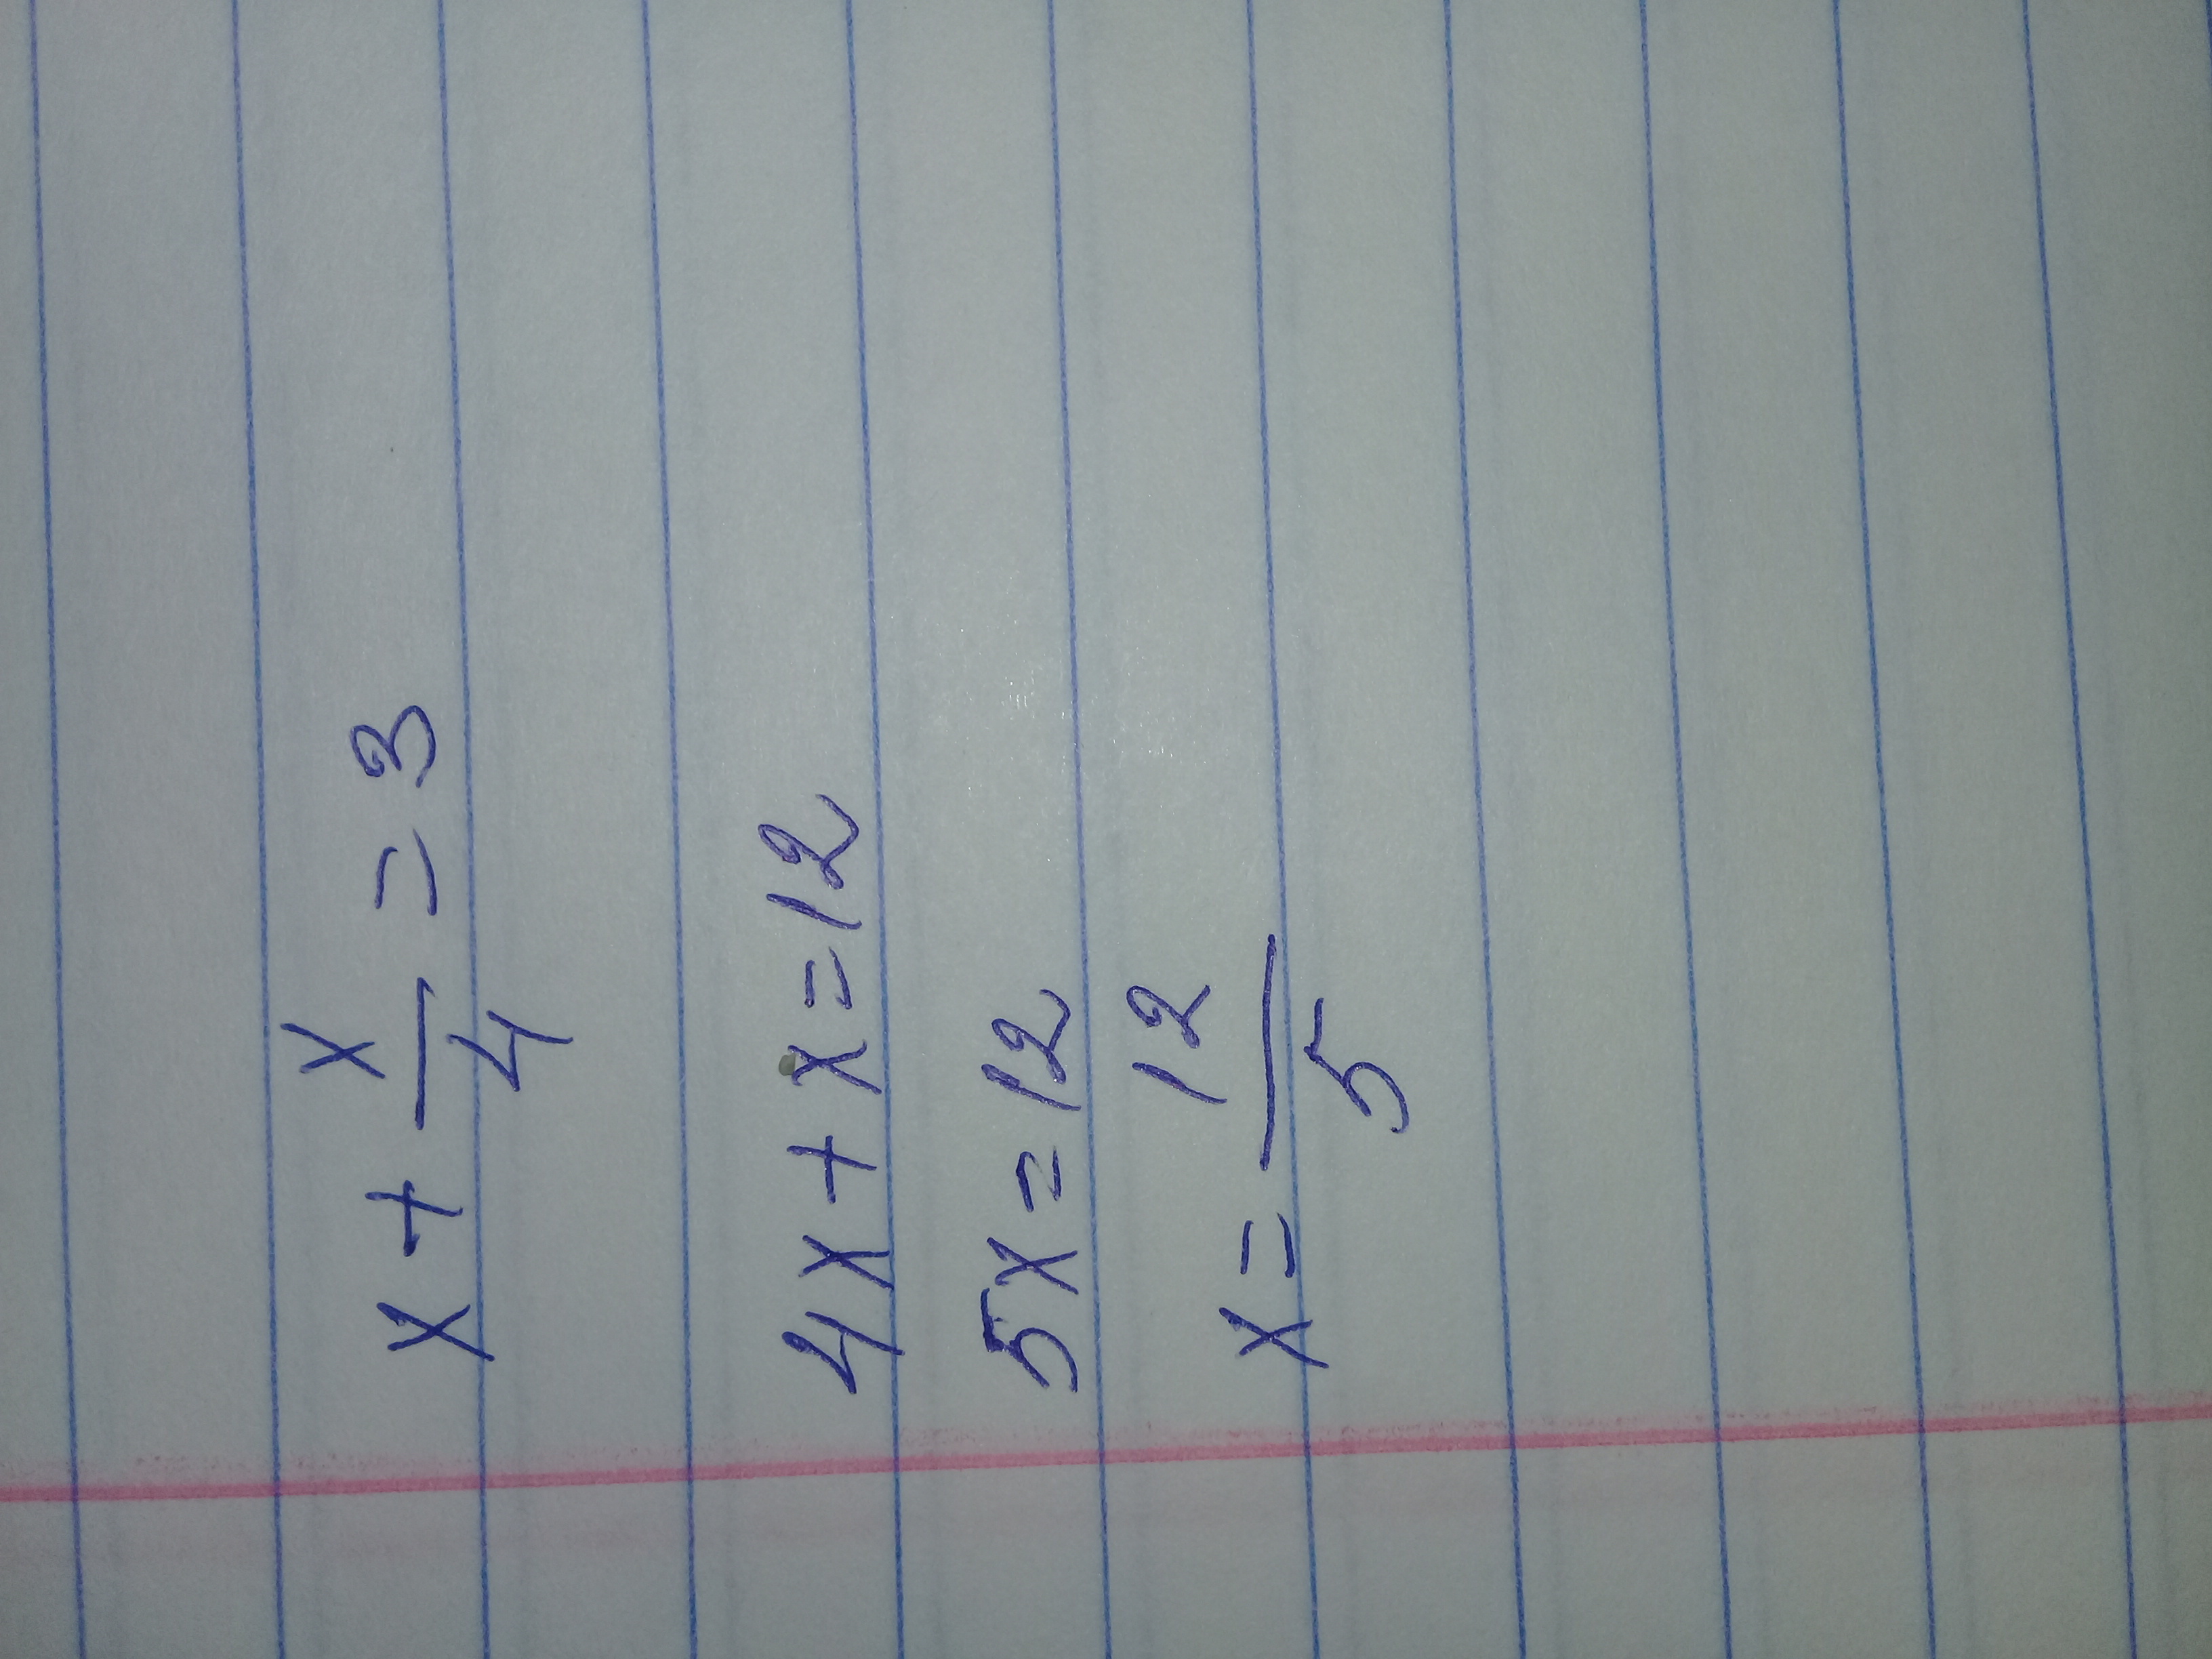 x + x/4 = 3
4x + x = 12
5x = 12
x = 12/5